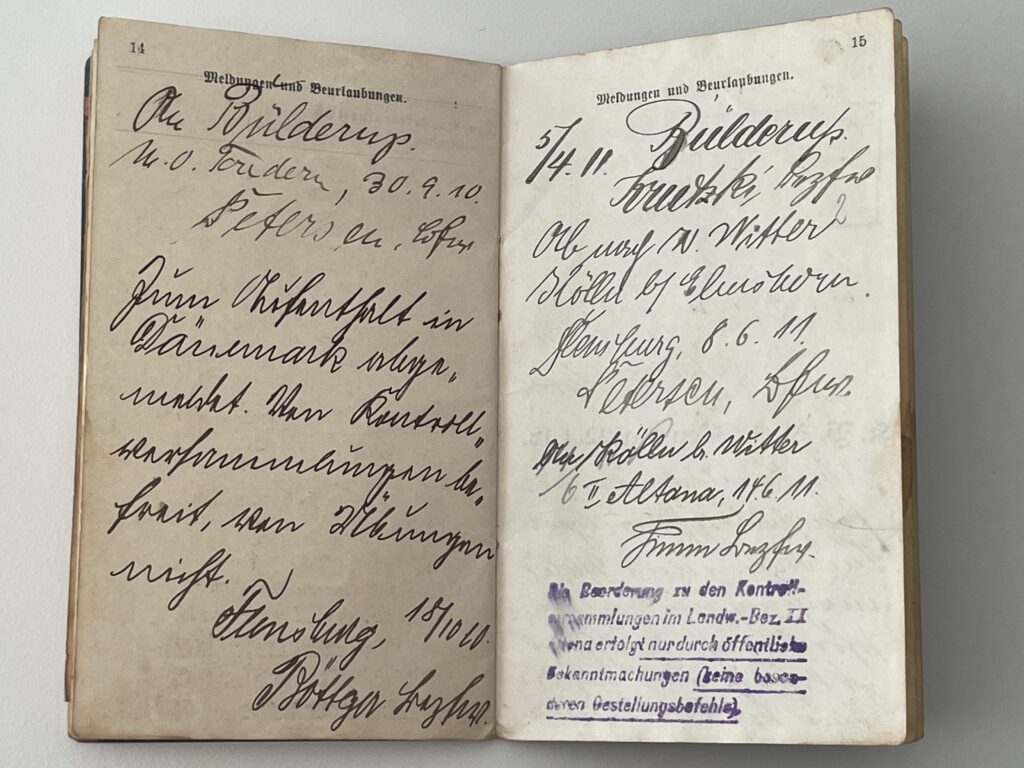 14
Meldungen und Beurlaubungen.
An Bülderup.
M. O. Tondern, 30.9.10.
Petersen, Bzfw
Zum Aufenthalt in
Dänemark abge„
meldet. Von Kontroll„
versammlungen be„
freit, von Übungen
nicht.
Flensburg, 18/10 10.
Böttger Bezfw.
15
Meldungen und Beurlaubungen.
5/4. 11. Bülderup.
Bezfw
Ab nach W. Witter
Kölln b/ Elmshorn.
Flensburg, 8.6.11.
Petersen, Bzfw.
An Kölln b. Witter
II Altona, 14 6. 11.
Timm Bezfw.
Die Beorderung zu den Kontroll-
versammlungen im Landw.-Bez. II
Altona erfolgt nur durch öffentliche
Bekanntmachungen (keine beson-
deren Gestellungsbefehle).